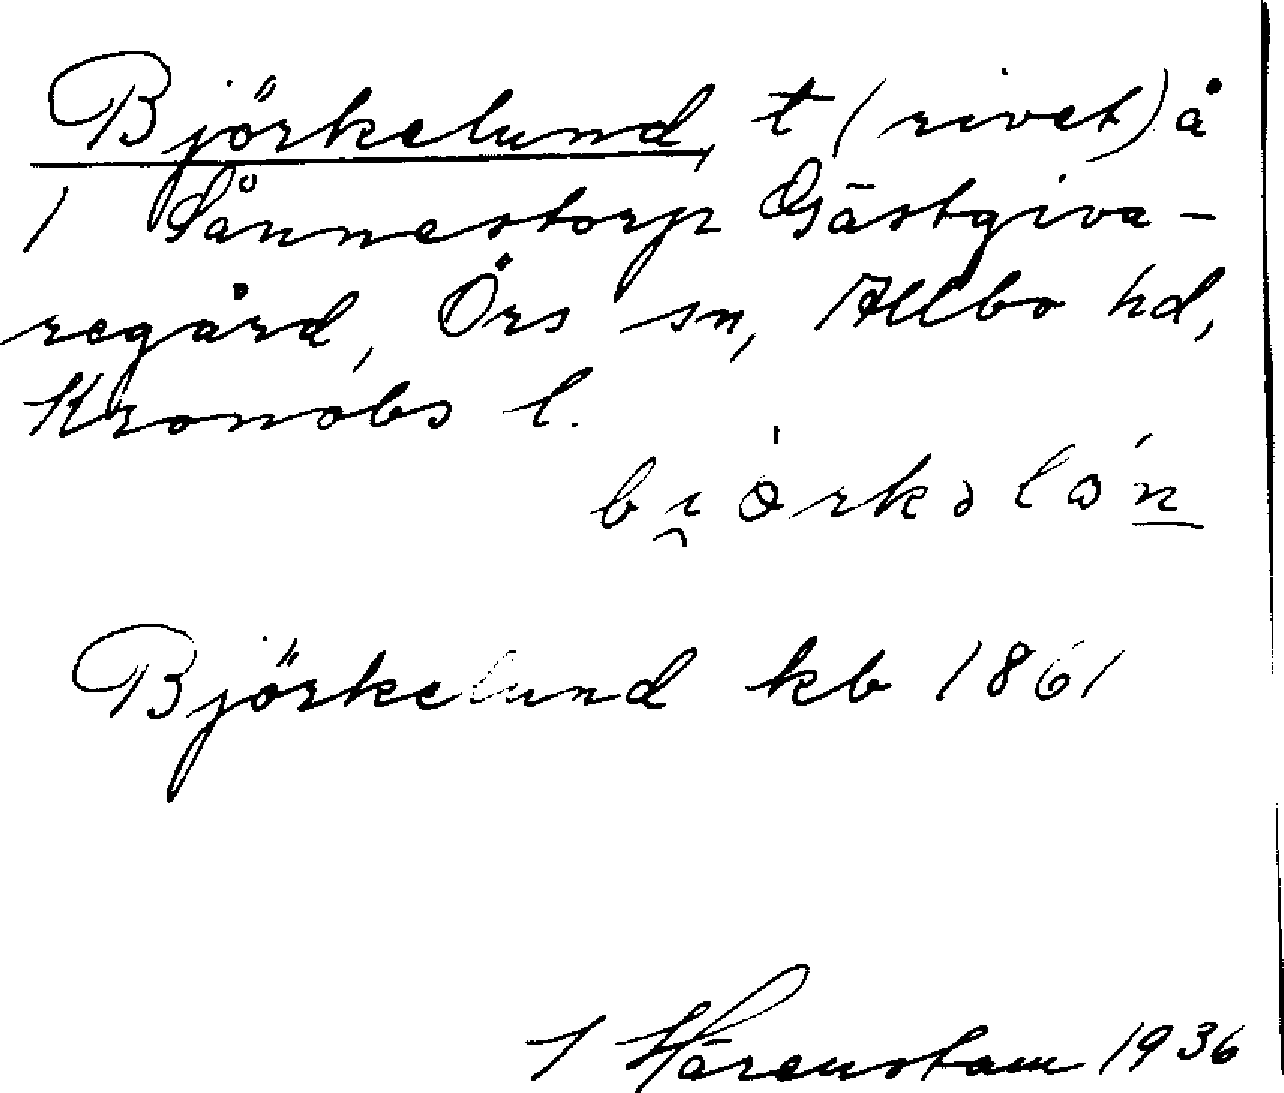 Björkelund, t (rivet) å
1 Sånnestorp Gästgiva-
regård, Örs sn, Allbo hd,
Kronobs l.
Björkelund kb 1861
Härenstam 1936